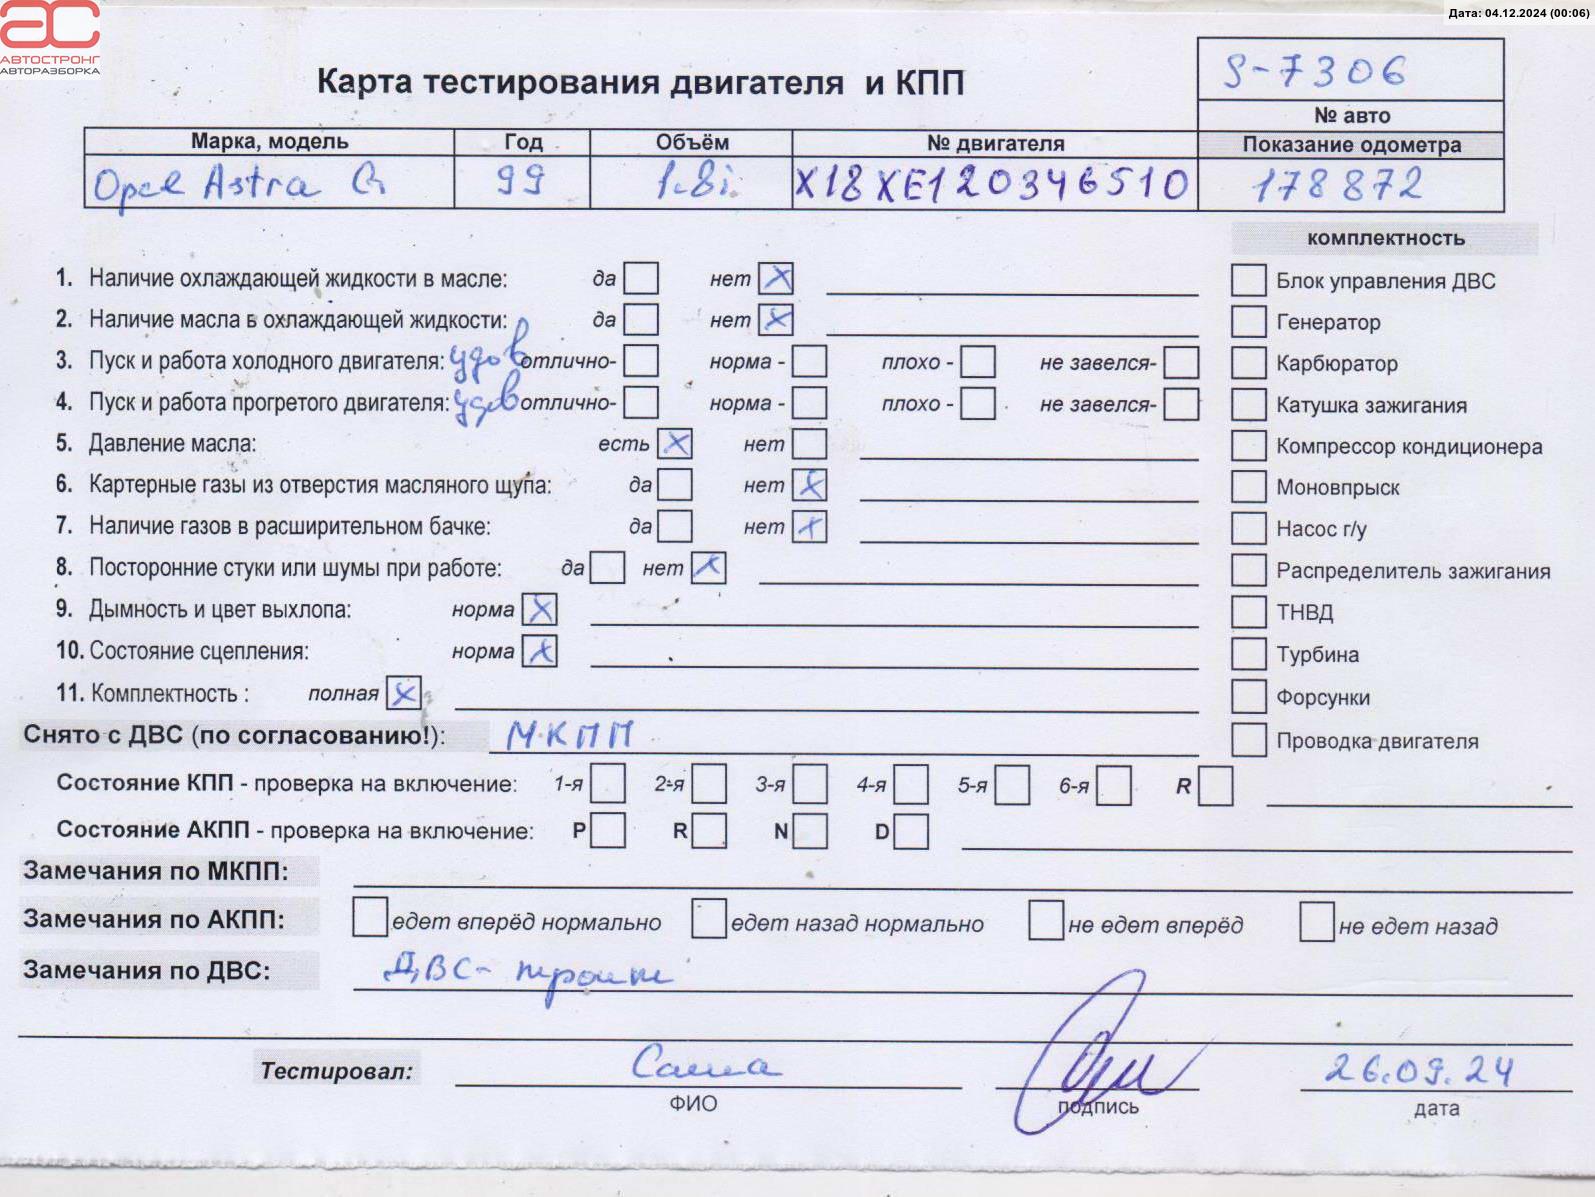 Дата: 04.12.2024 (00:06)
АС
АВТОСТРОНГ
АВТОРАЗБОРКА
Карта тестирования двигателя и КПП
S-7306
№ авто
Марка, модель Год Объём № двигателя Показание одометра
Opel Astra G 99 1.8i X18XE120346510 178872
комплектность
1. Наличие охлаждающей жидкости в масле: да нет X
2. Наличие масла в охлаждающей жидкости: да нет X
3. Пуск и работа холодного двигателя: удов отлично- норма - плохо - не завелся-
4. Пуск и работа прогретого двигателя: удов отлично- норма - плохо - не завелся-
5. Давление масла: есть X нет
6. Картерные газы из отверстия масляного щупа: да нет X
7. Наличие газов в расширительном бачке: да нет X
8. Посторонние стуки или шумы при работе: да нет X
9. Дымность и цвет выхлопа: норма X
10. Состояние сцепления: норма X
11. Комплектность : полная X
Блок управления ДВС
Генератор
Карбюратор
Катушка зажигания
Компрессор кондиционера
Моновпрыск
Насос г/у
Распределитель зажигания
ТНВД
Турбина
Форсунки
Проводка двигателя
Снято с ДВС (по согласованию!): МКПП
Состояние КПП - проверка на включение: 1-я 2-я 3-я 4-я 5-я 6-я R
Состояние АКПП - проверка на включение: P R N D
Замечания по МКПП:
Замечания по АКПП: едет вперёд нормально едет назад нормально не едет вперёд не едет назад
Замечания по ДВС: ДВС- троит
Тестировал: Саша 26.09.24
ФИО подпись дата